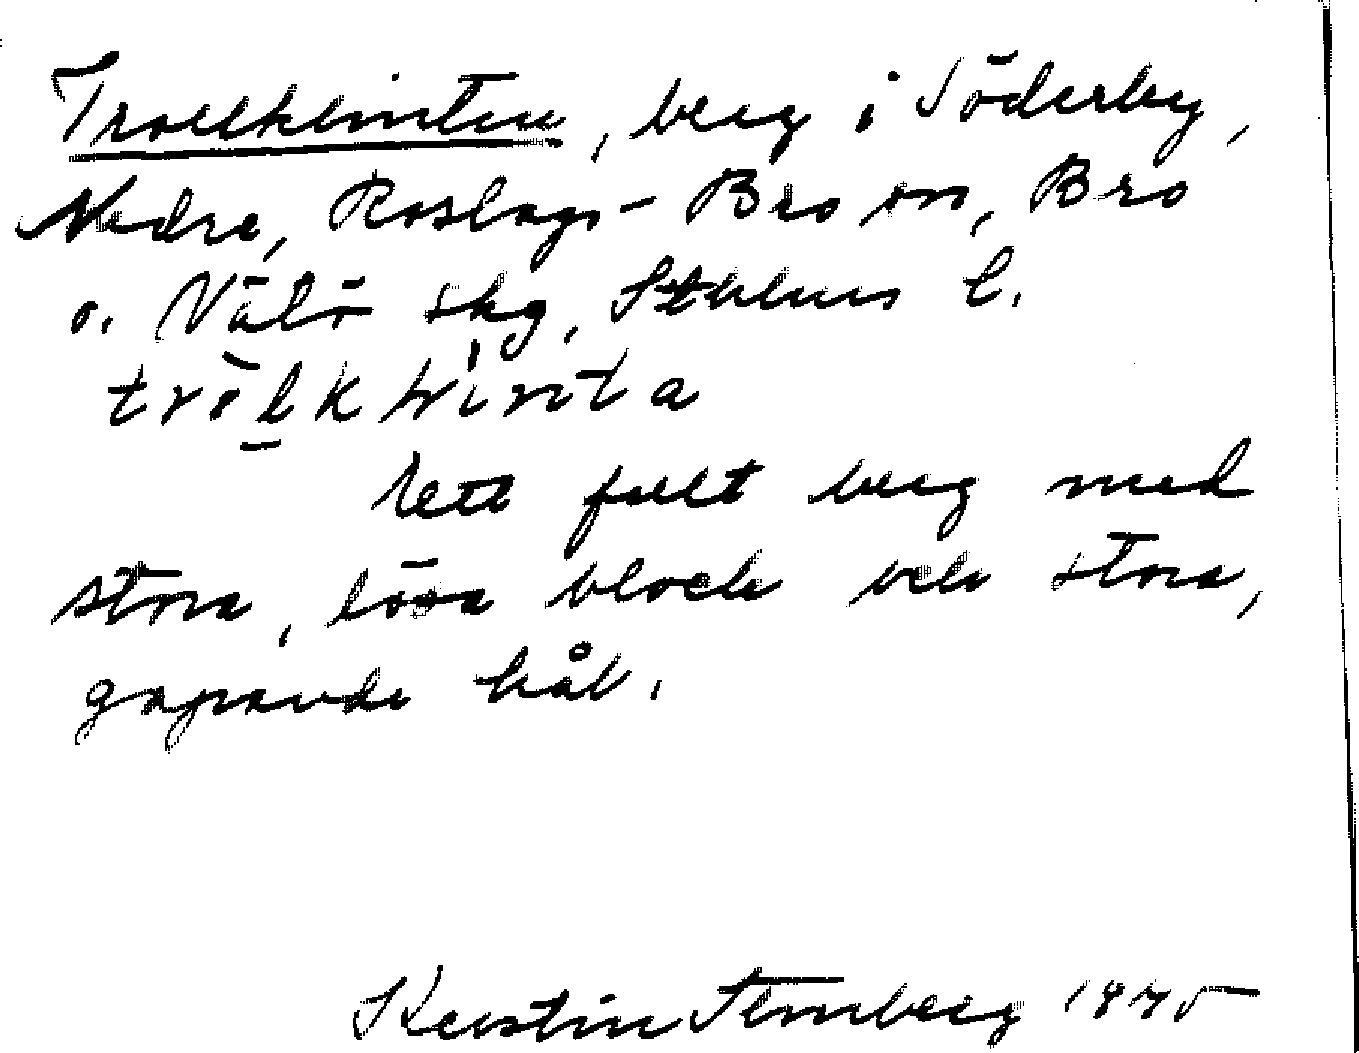 Trollklinten, berg i Söderby,
Nedre, Roslags-Bro sn, Bro
o. Vätö skg, Sthlms l.
Ett fult berg med
stora, lösa block och stora,
gapande hål.
Kerstin Stenberg 1945